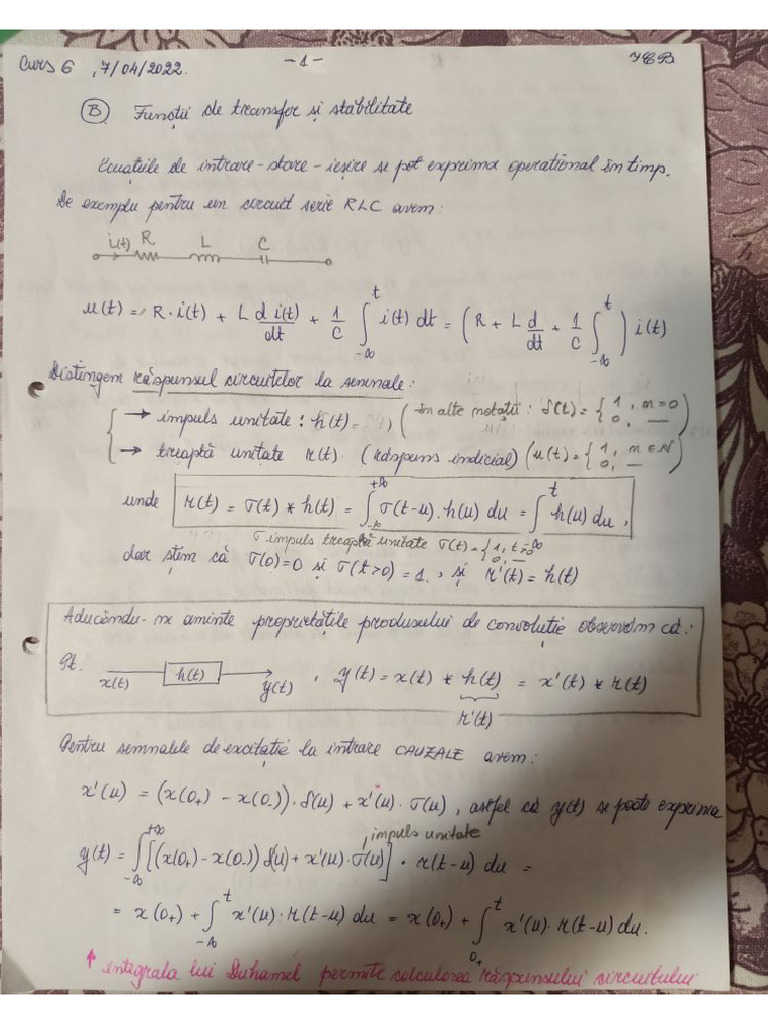 Curs 6, 7/04/2022. -1-
(B) Funcții de transfer și stabilitate
Ecuațiile de intrare-stare-ieșire se pot exprima operațional în timp.
De exemplu pentru un circuit serie RLC avem:
i(t) R L C
u(t) = R·i(t) + L d i(t)/dt + 1/C ∫_{-∞}^{t} i(t) dt = (R + L d/dt + 1/C ∫_{-∞}^{t}) i(t)
Distingem răspunsul circuitelor la semnale:
→ impuls unitate: h(t) = (în alte notații: δ(t) = { 1, n=0 0, — )
→ treaptă unitate r(t) (răspuns indicial) (u(t) = { 1, n∈N 0, — )
unde r(t) = σ(t) * h(t) = ∫_{-∞}^{+∞} σ(t-u)·h(u) du = ∫_{-∞}^{t} h(u) du,
σ impuls treaptă unitate σ(t) = { 1, t>0 0, —
dar știm că σ(0)=0 și σ(t>0)=1., și r'(t) = h(t)
Aducându-ne aminte proprietățile produsului de convoluție observăm că:
Pt. x(t) h(t) y(t) , y(t) = x(t) * h(t) = x'(t) * r(t)
r'(t)
Pentru semnalele de excitație la intrare CAUZALE avem:
x'(u) = (x(0+) - x(0-))·δ(u) + x'(u)·σ(u), astfel că y(t) se poate exprima
, impuls unitate
y(t) = ∫_{-∞}^{+∞} [(x(0+) - x(0-)) δ(u) + x'(u)·σ(u)] · r(t-u) du =
= x(0+) + ∫_{-∞}^{t} x'(u)·r(t-u) du = x(0+) + ∫_{0+}^{t} x'(u)·r(t-u) du.
↑ integrala lui Duhamel permite calcularea răspunsului circuitului